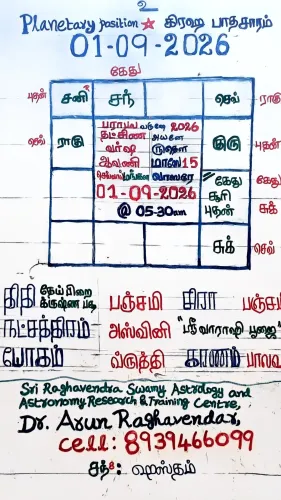 உ
Planetary position ☆ கிரஹ பாதசாரம்
01-09-2026
கேது
புதன் சனி சந் செவ் ராகு
பராபவ வருஷ 2026
தட்சிண அயனே
செவ் ராகு வர்ஷ ருதௌ குரு புதன்
ஆவணி மாஸே 15
செவ்வாய் வாஸரே கேது கேது
01-09-2026 சூரி
@ 05-30am புதன் சுக்
சுக் செவ்
திதி தேய்பிறை பஞ்சமி பஞ்சமி
நட்சத்திரம் அஸ்வினி ஸ்ரீ வாராஹி பூஜை
யோகம் வ்ருத்தி கரணம் பாலவ
Sri Raghavendra Swamy Astrology and
Astronomy Research & Training Centre,
Dr. Arun Raghavendar,
cell: 8939466099
சந் ஹஸ்தம்